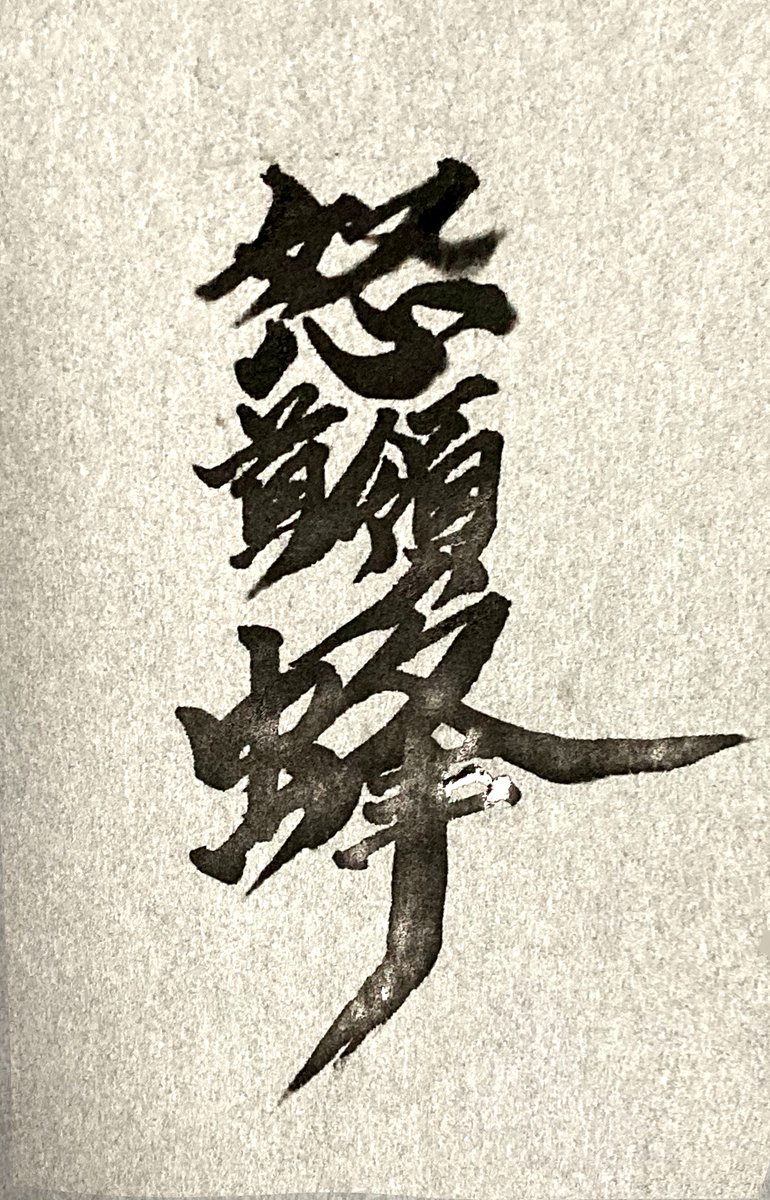 怒首領蜂